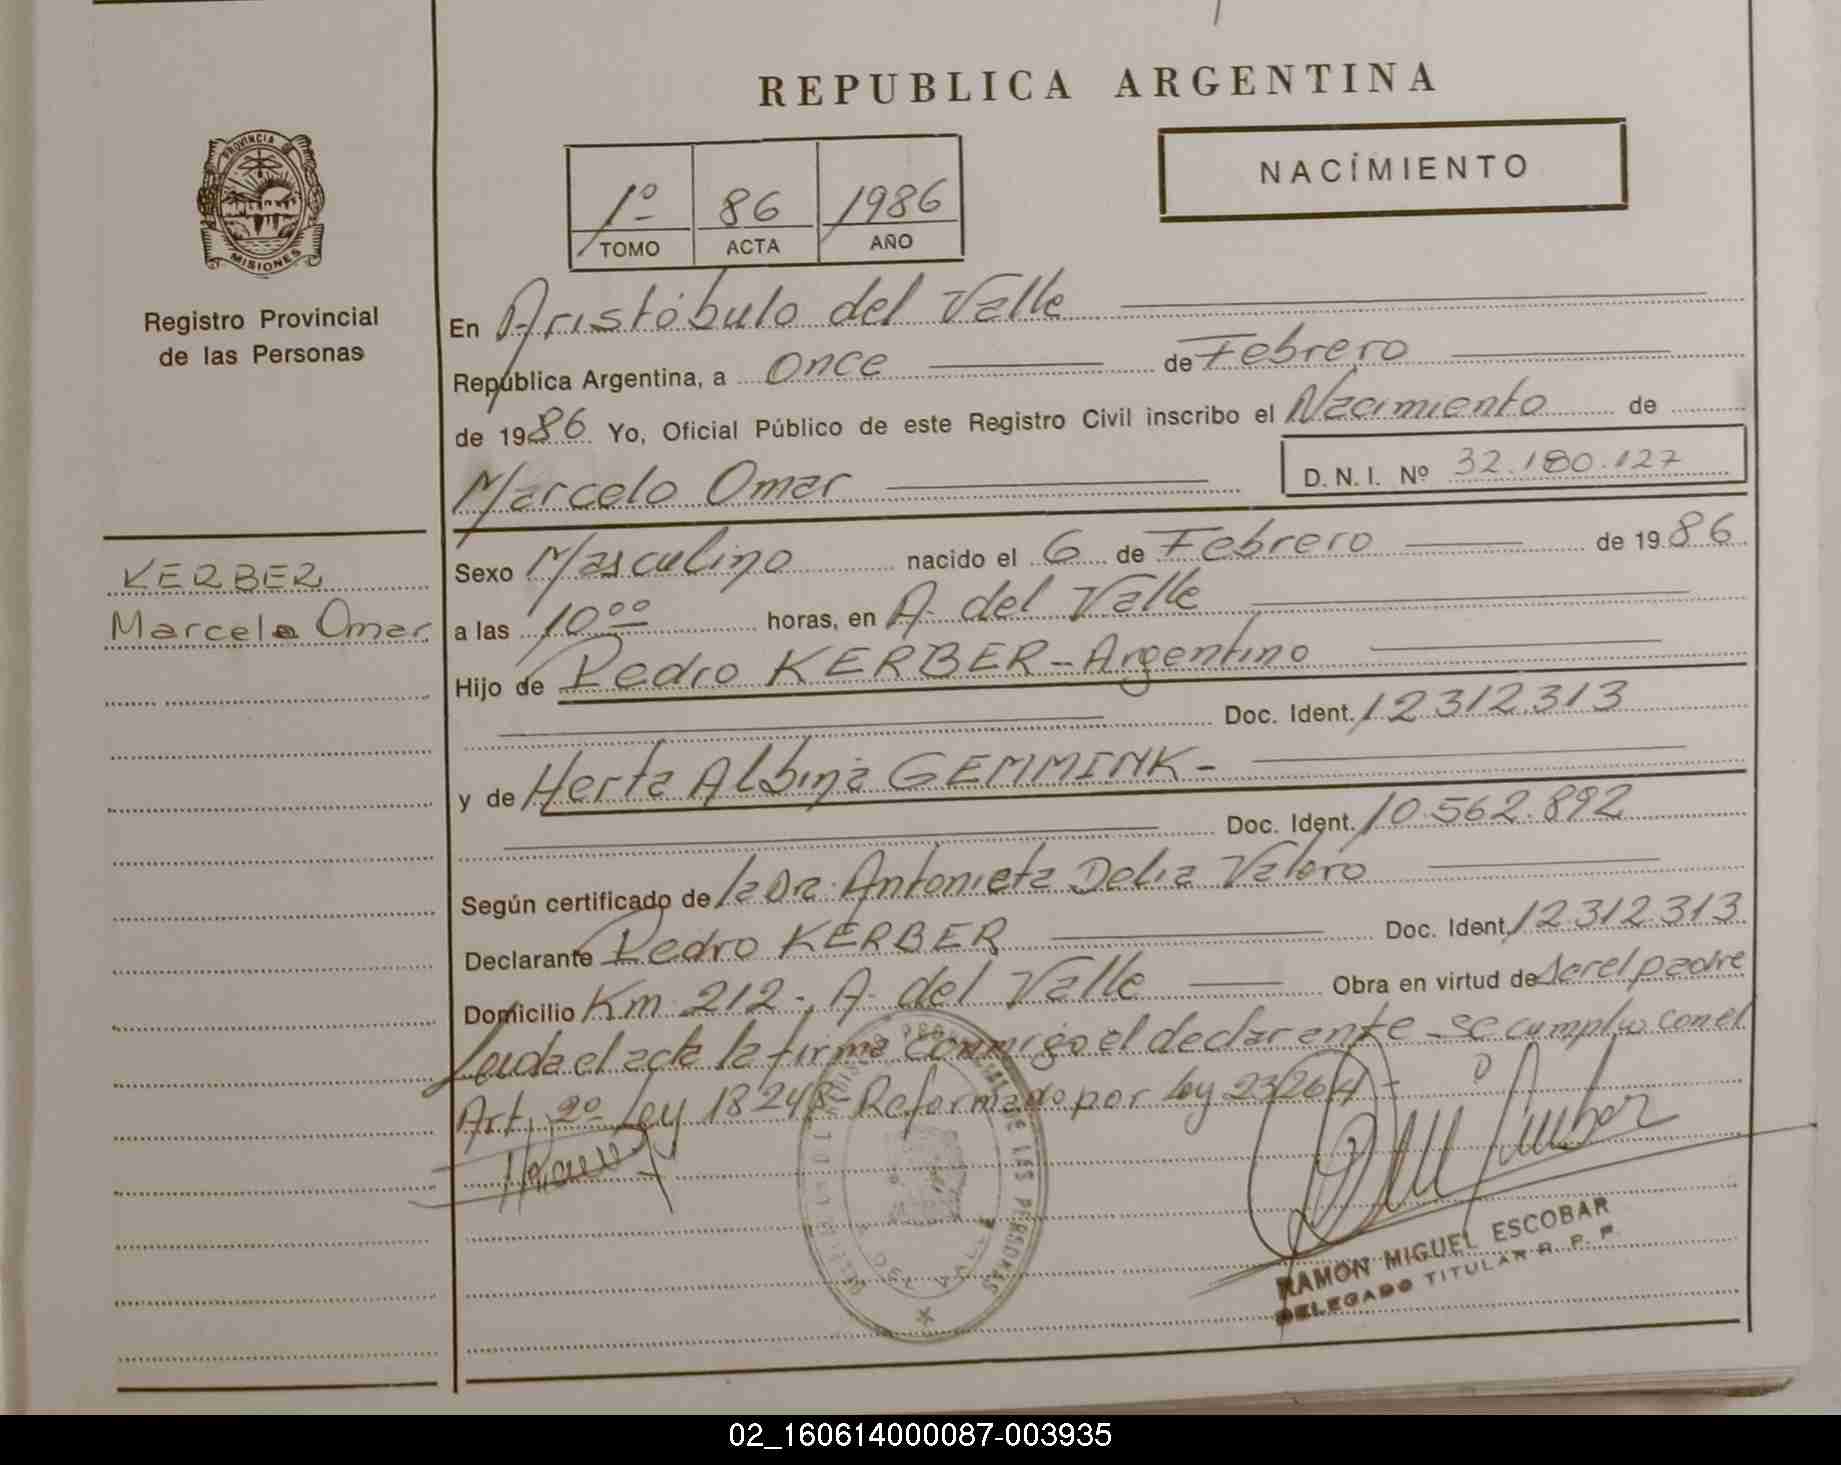 REPUBLICA ARGENTINA
NACÍMIENTO
1º 86 1986
TOMO ACTA AÑO
PROVINCIA DE
MISIONES
Registro Provincial
de las Personas
KERBER
Marcelo Omar
En Aristóbulo del Valle
República Argentina, a once de Febrero
de 1986 Yo, Oficial Público de este Registro Civil inscribo el Nacimiento de
Marcelo Omar D. N. I. Nº 32.180.127
Sexo Masculino nacido el 6 de Febrero de 1986
a las 10 00 horas, en A. del Valle
Hijo de Pedro KERBER-Argentino
Doc. Ident. 12312.313
y de Herta Albina GEMMINK-
Doc. Ident. 10.562.892
Según certificado de la Dra. Antonieta Delia Valoro
Declarante Pedro KERBER Doc. Ident. 12.312.313
Domicilio Km 212-A. del Valle Obra en virtud de ser el padre
Leida el acta la firma conmigo el declarante-se cumplio con el
Art. 2º Ley 18248-Reformado por ley 23264-
DE LAS PERSONAS
RAMON MIGUEL ESCOBAR
DELEGADO TITULAR R. P. P.
02_160614000087-003935